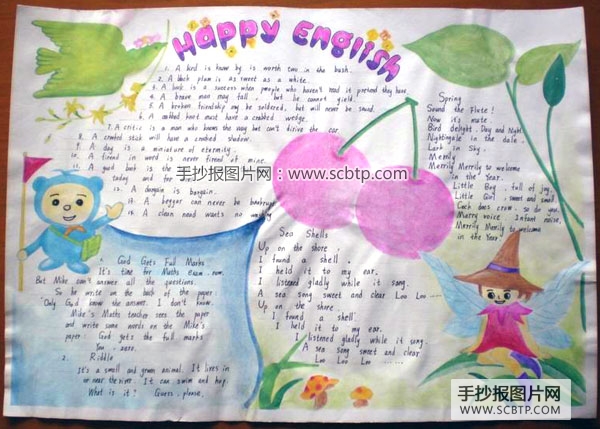 Happy English
1. A bird in hand is worth two in the bush.
2. A black plum is as sweet as a white.
3. A book is a success when people who haven't read it pretend they have.
4. A brave man may fall, but he cannot yield.
5. A broken friendship may be soldered, but will never be sound.
6. A crabbed knot must have a crabbed wedge.
7. A critic is a man who knows the way but can't drive the car
8. A crooked stick will have a crooked shadow.
9. A day is a miniature of eternity.
10. A friend in word is never friend of mine.
11. A good book is the
today and for
12. A bargain is bargain.
13. A beggar can never be bankrupt
14. A clean hand wants no washing
手抄报图片网:www.scbtp.com
Spring
Sound the Flute!
Now it's mute.
Bird delight. Day and Night
Nightingale in the dale.
Lark in Sky.
Merrily
Merrily Merrily to welcome
in the Year.
Little Boy, full of joy,
Little Girl, sweet and small
Cock does crow. so do you.
Merry voice Infant noise,
Merrily Merrily to welcome
in the Year.
Sea Shells
Up on the shore,
I found a shell,
I held it to my ear.
I listened gladly while it song.
A sea song sweet and clear Loo Loo
Up on the shore.
I found a shell
I held it to my ear.
I listened gladly while it song
A sea song sweet and clear
Loo Loo Loo
God Gets Full Marks
It's time for Maths exam.
But Mike can't answer all the questions.
So he write on the back of the paper
"Only God know the answer. I don't know.
Mike's Maths teacher sees the paper
and write some words on the Mike's
paper: God gets the full marks
You zero.
2. Riddle
It's a small and green animal. It lives in
or near the river. It can swim and hop
What is it? Guess, please.
手抄报图片网
WWW.SCBTP.COM